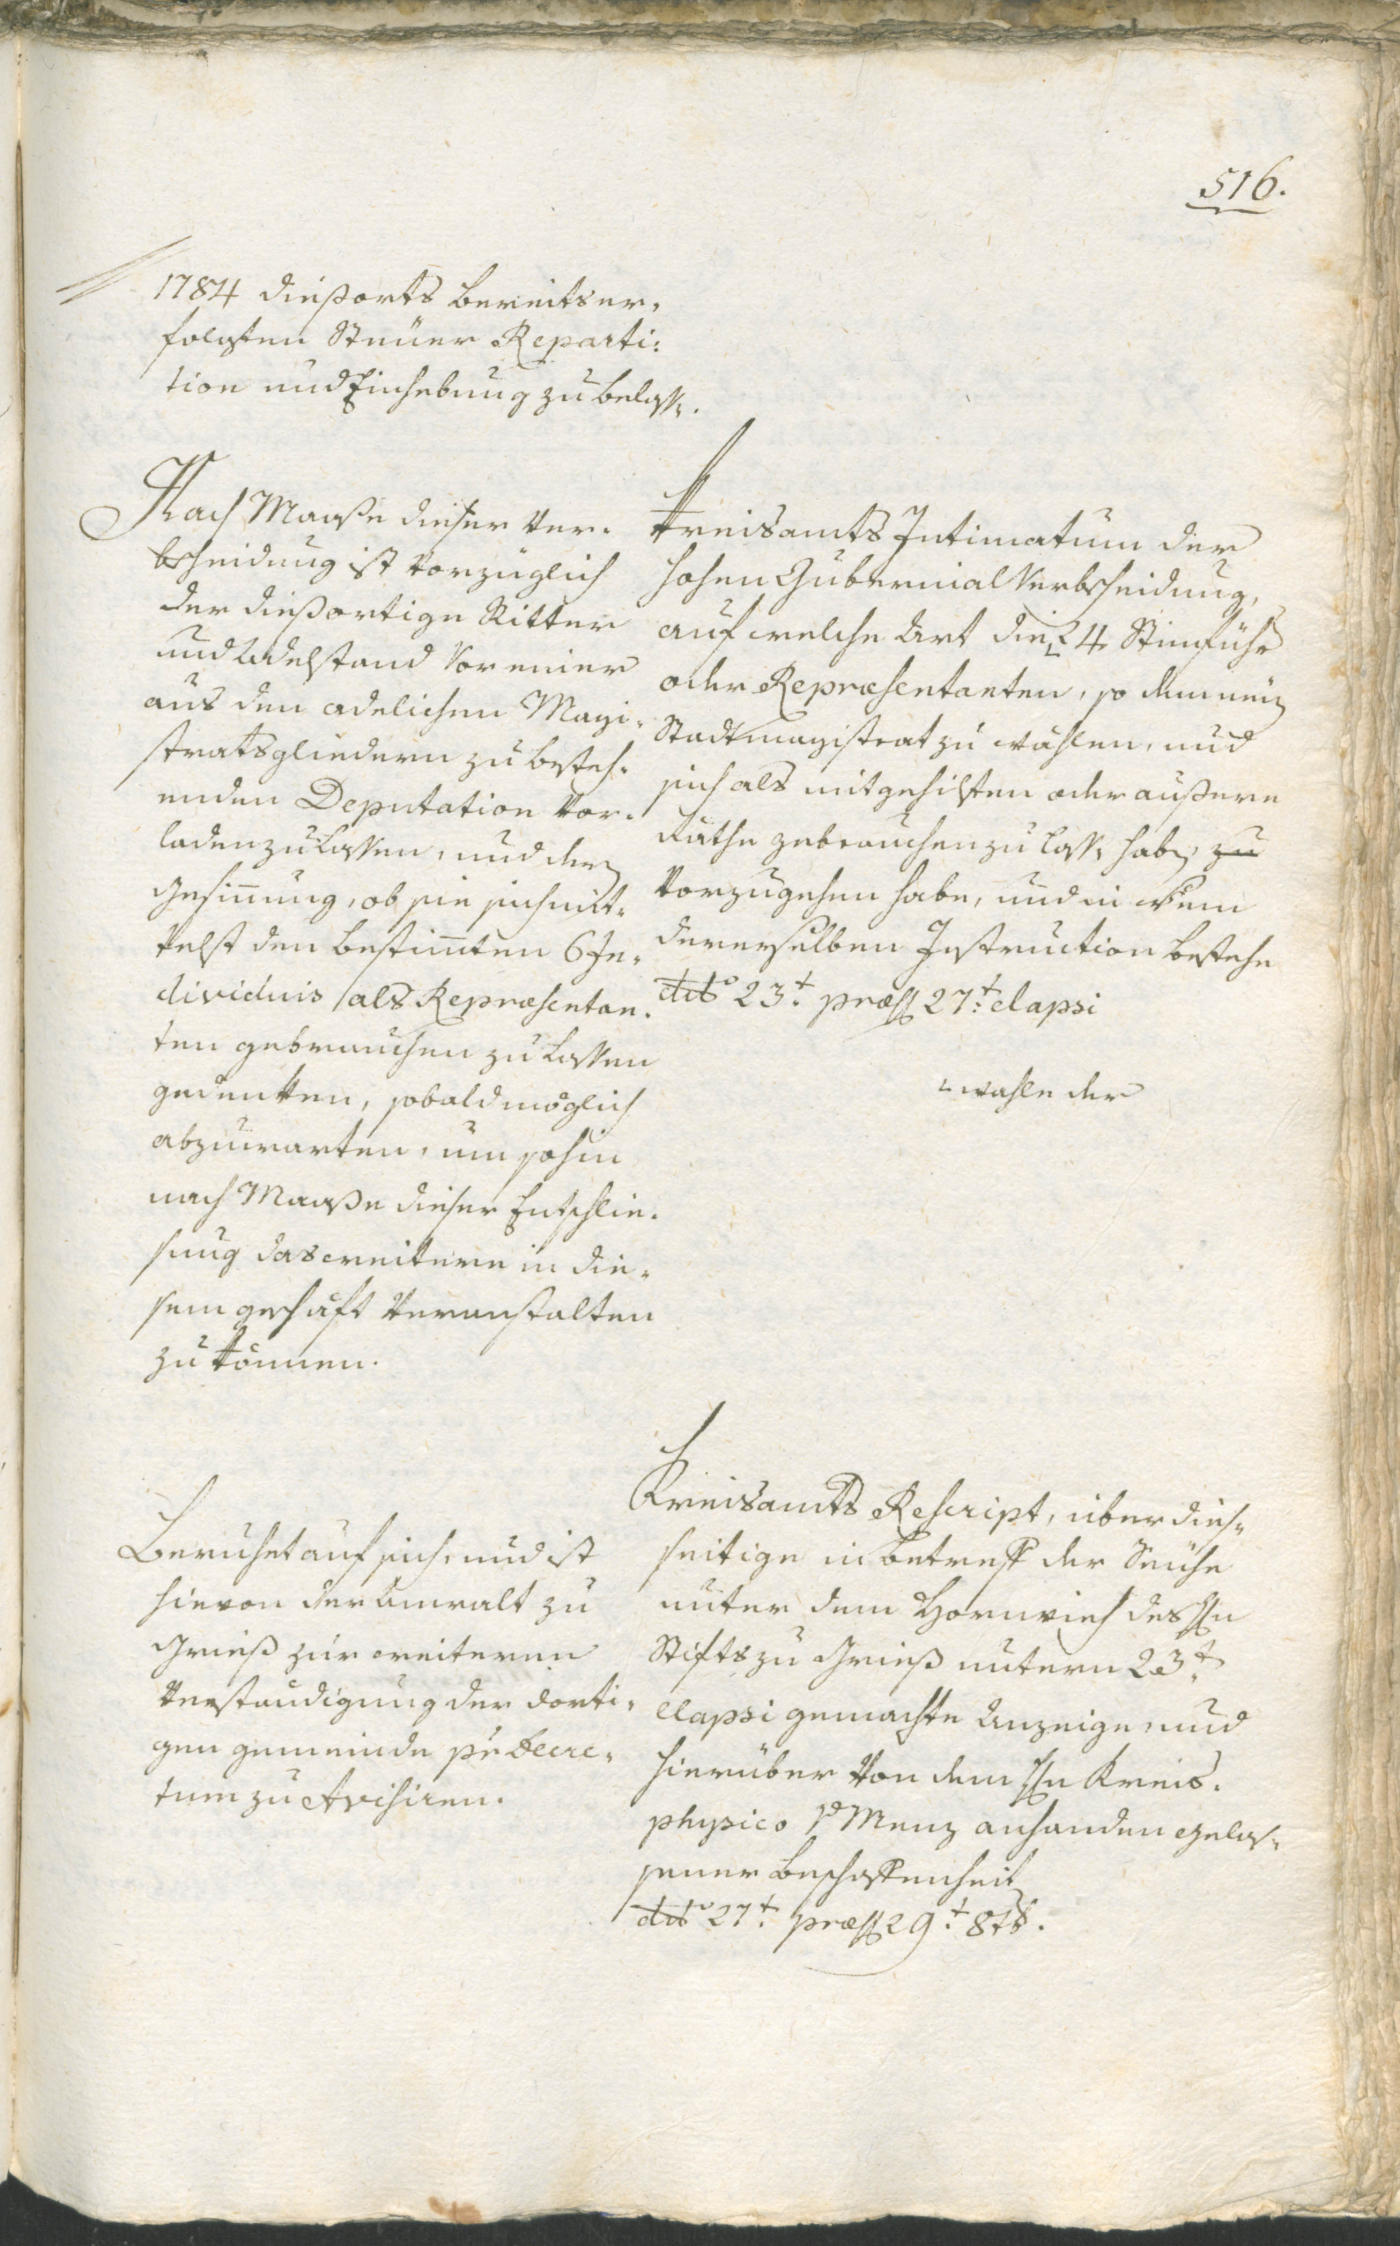 516.
1784 dießorts bereits er,
folgten Steuer Reparti:
tion und Einhebung zu belass.
Nach Maaße dieser Ver-
bscheidung ist vorzüglich
der dießortige Ritter
und Adelstand vor einer
aus den adelichen Magi-
stratsgliedern zu besteh-
enden Deputation vor-
laden zu lassen, und der
Gesinnung, ob sie sich mit-
telst den bestimmten 6 In-
dividuis als Repræsentan-
ten gebrauchen zu lassen
gedenken, sobald möglich
abzuwarten, um sohin
nach Maaße dieser Entschlie-
sung das weitere in die-
sem geschäft veranstalten
zu können.
Kreisamts Intimatum der
hohen Gubernial Verbscheidung,
auf welche Art die 24 Stimführ
oder Repræsentanten, so den neuen
Stadtmagistrat zu wählen, und
sich als mitgehilfen oder außere
Räthe gebrauchen zu lass. haben, zu
vorzugehen habe, und in wem
derenselben Instruction bestehe
ddto 23t. præss 27t. elapsi
wahle der
Beruhet auf sich, und ist
hievon der Anwalt zu
Grieß zur weiteren
Verständigung der dorti-
gen gemeinde pr Decre-
tum zu Avisiren.
Kreisamts Rescript, über dies-
seitige in betreff der Seuche
unter dem Hornvieh des Hn
Stifts zu Grieß untern 23t.
elapsi gemachte Anzeige, und
hierüber von dem Hn Kreis-
physico v Menz anhanden gelas-
sener Beschaffenheit
ddto 27t. præss 29t. 8tb.